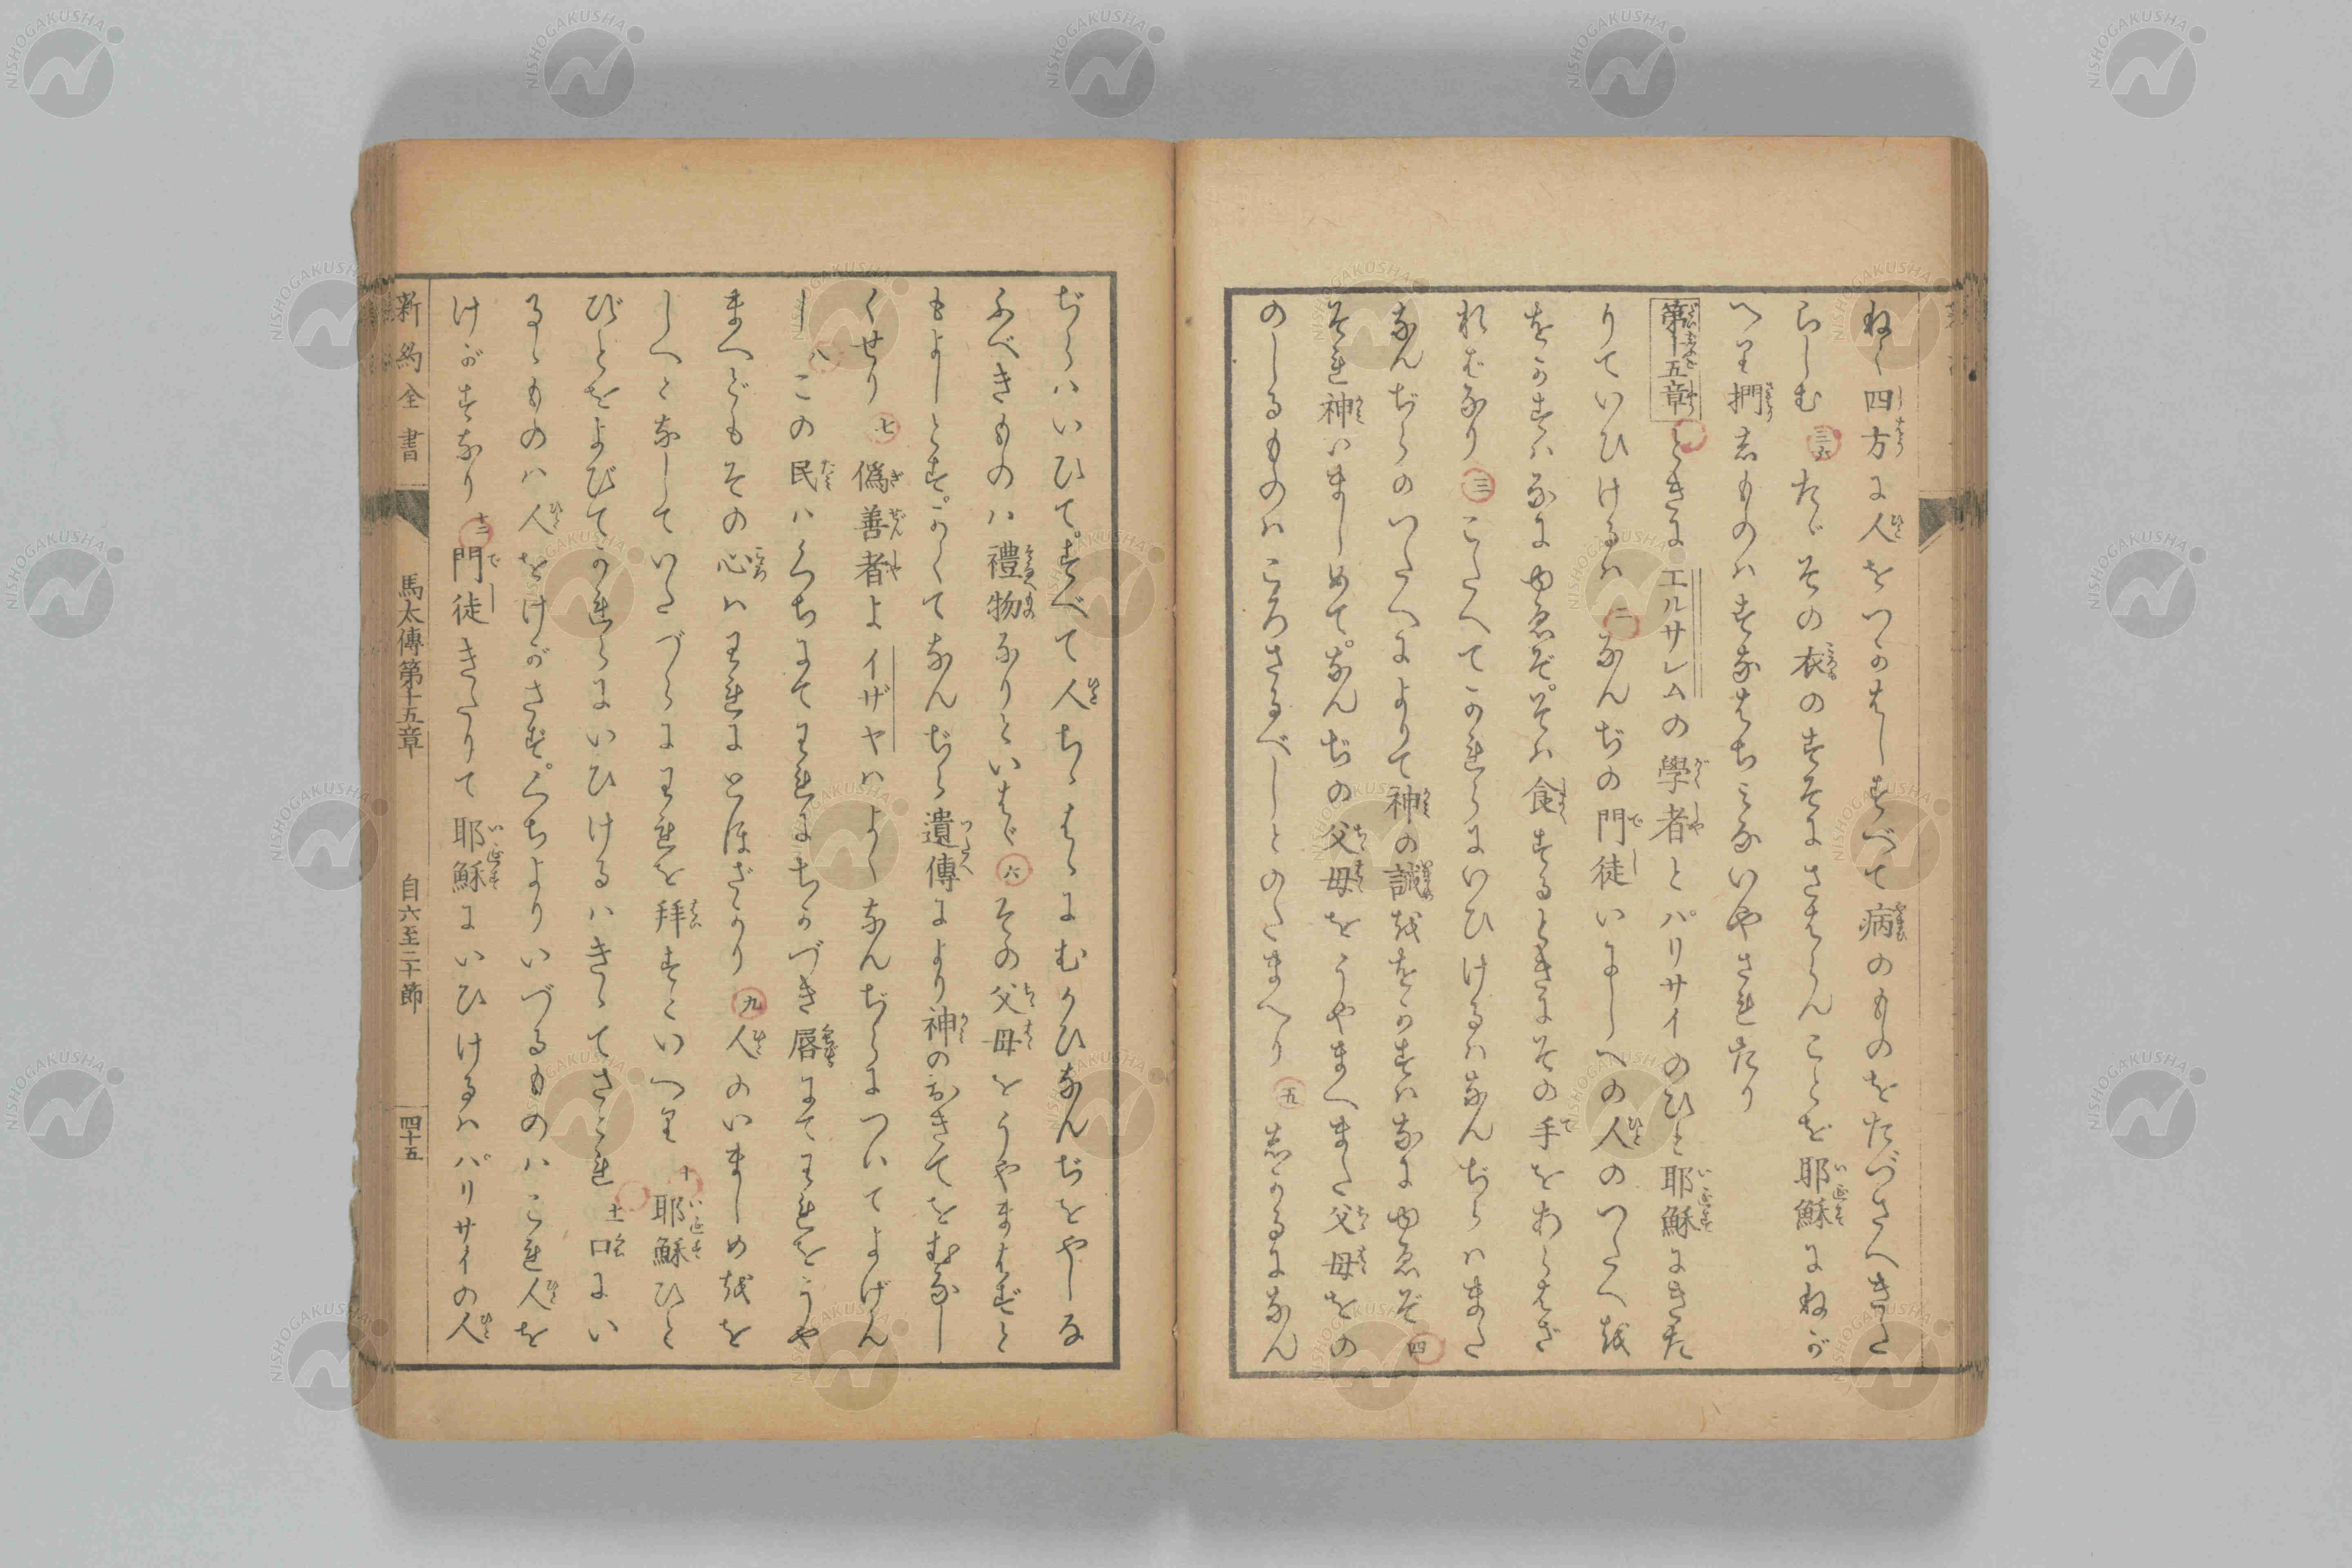 ねく四方に人をつかはしすべて病のものをたづさへきた
らしむ 三六 たゞその衣のすそにさはらんことを耶穌にねが
へり捫しものはすなはちみないやされたり
第十五章 ときにエルサレムの學者とパリサイのひと耶穌にきた
りていひけるは 二 なんぢの門徒いにしへの人のつたへを
をかすはなにゆゑぞ。そは食するときにその手をあらはざ
ればなり 三 こたへてかれらにいひけるはなんぢらはまた
なんぢらのつたへによりて神の誡をおかすはなにゆゑぞ 四
それ神いましめて。なんぢの父母をうやまへまた父母をの
のしるものはころさるべしとのたまへり 五 しかるになん
ぢらはいひて。すべて人ちゝはゝにむかひなんぢをやしな
ふべきものは禮物なりといはゞ 六 その父母をうやまはずと
もよしとす。かくてなんぢら遺傳により神のおきてをむなし
くせり 七 僞善者よイザヤはよくなんぢらについてよげん
し 八 この民はくちにてわれにちかづき唇にてわれをうや
まへどもその心はわれにとほざかり 九 人のいましめを
しへとなしていたづらにわれを拜すといへり 十 耶穌ひと
びとをよびてかれらにいひけるはきゝてさとれ 十一 口にい
るゝものは人をけがさず。くちよりいづるものはこれ人を
けがすなり 十二 門徒きたりて耶穌にいひけるはパリサイの人
新約全書 馬太傳第十五章 自六至二十節 四十五
NISHOGAKUSHA